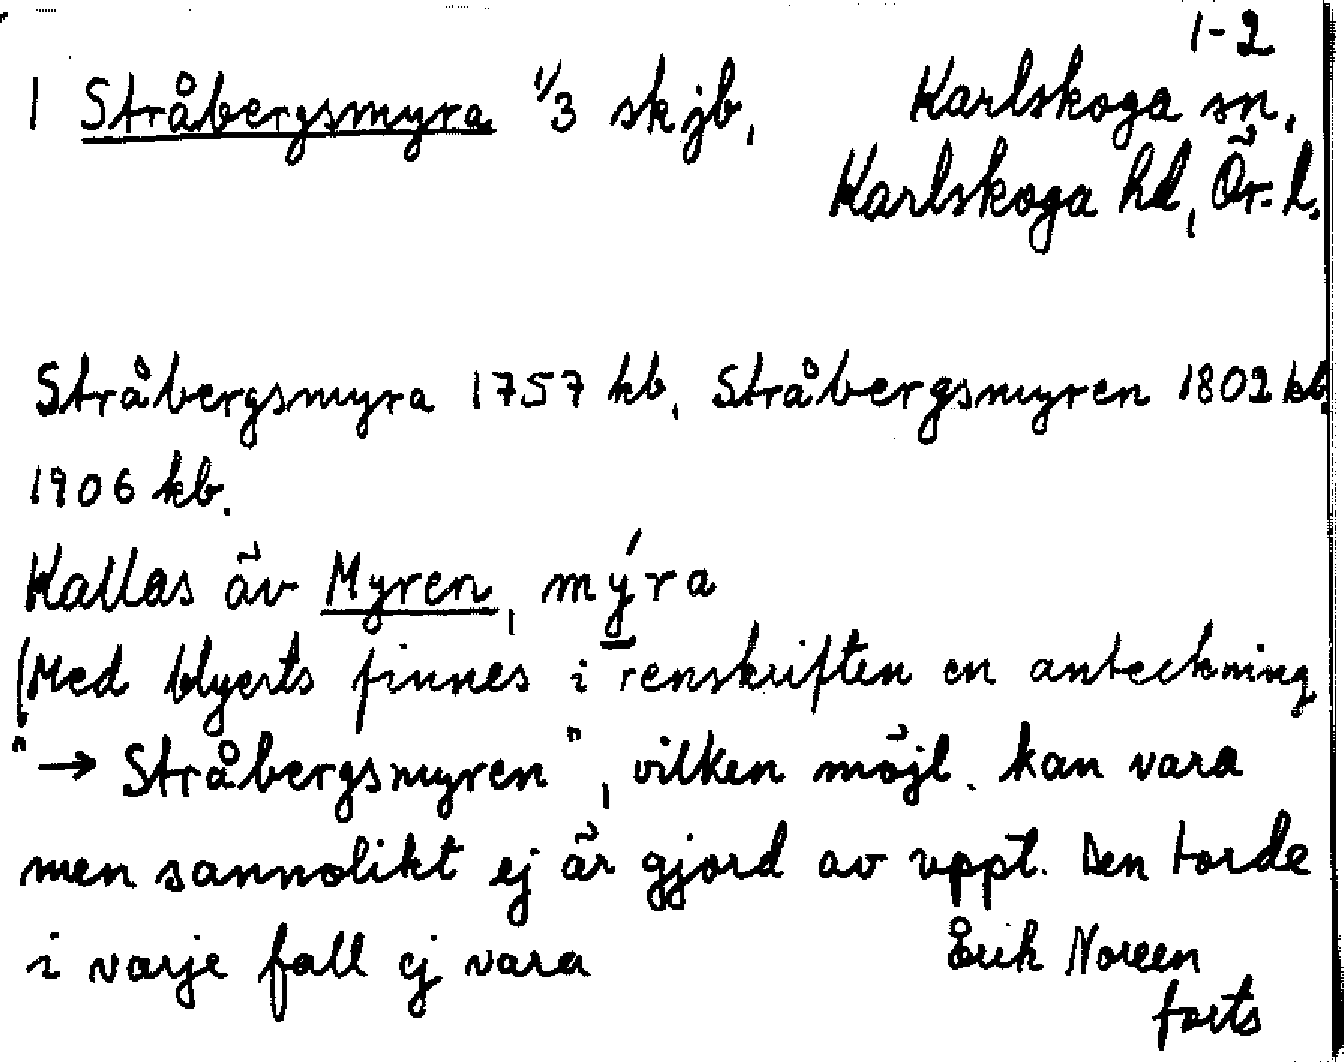 1-2
1 Stråbergsmyra 1/3 skjb, Karlskoga sn.
Karlskoga hd, Ör. l.
Stråbergsmyra 1757 kb, Stråbergsmyren 1802 kb,
1906 kb.
Kallas äv Myren, mýra
(Med blyerts finnes i renskriften en anteckning
"→ Stråbergsmyren", vilken möjl. kan vara
men sannolikt ej är gjord av uppt. Den torde
i varje fall ej vara Erik Noreen
forts